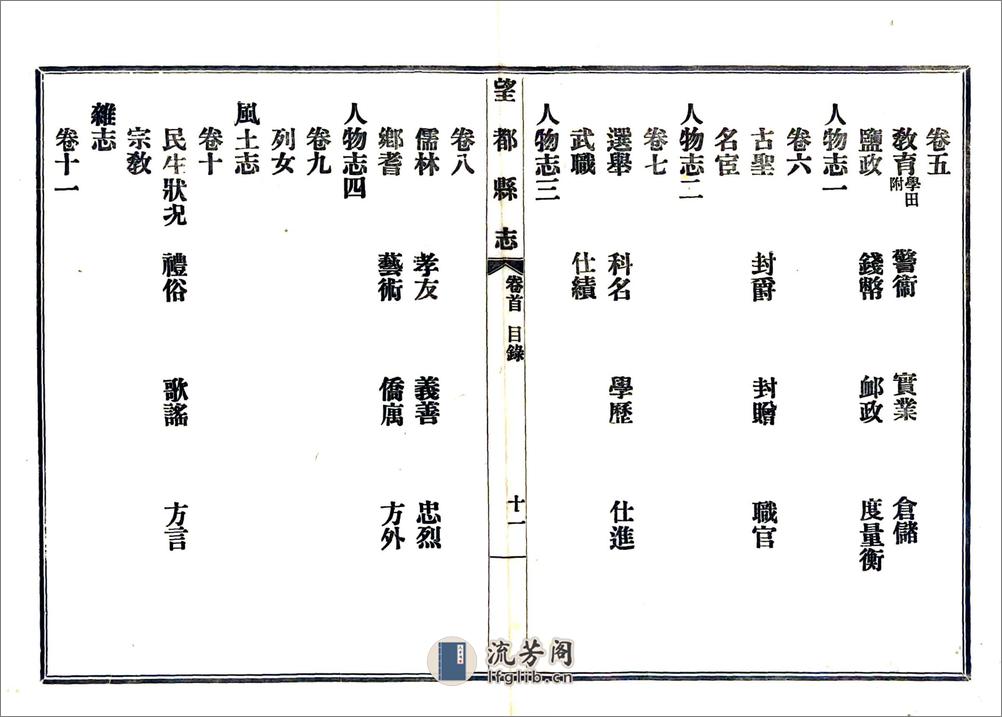 卷五
教育學田附 警衞 實業 倉儲
鹽政 錢幣 郵政 度量衡
人物志一
卷六
古聖 封爵 封贈 職官
名宦
人物志二
卷七
選舉 科名 學歷 仕進
武職 仕績
人物志三
望都縣志 卷首 目錄 十一
卷八
儒林 孝友 義善 忠烈
鄉耆 藝術 僑寓 方外
人物志四
卷九
列女
風土志
卷十
民生狀況 禮俗 歌謠 方言
宗教
雜志
卷十一
流芳阁
lfglib.cn